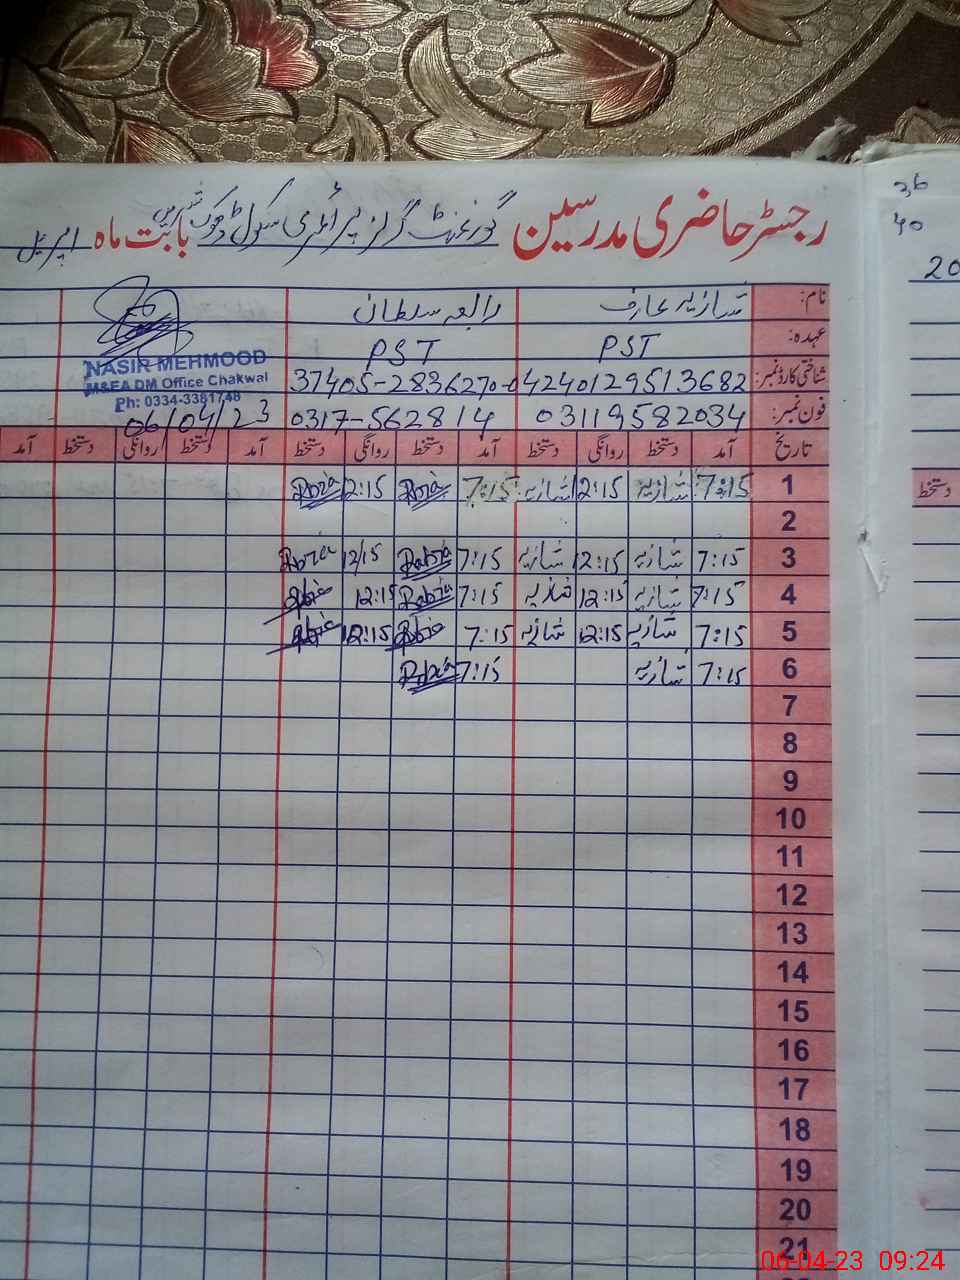 رجسٹر حاضری مدرسین گورنمنٹ گرلز پرائمری سکول ڈھوک بابت ماہ اپریل
نام: شازیہ عارف رابعہ سلطان
عہدہ: PST PST
شناختی کارڈ نمبر: 4240129513682 37405-2836270-0
فون نمبر: 03119582034 0317-562814
NASIR MEHMOOD
M&EA DM Office Chakwal
Ph: 0334-3381748
06/04/23
تاریخ آمد دستخط روانگی دستخط آمد دستخط روانگی دستخط آمد دستخط روانگی دستخط آمد
1 7:15 شازیہ 12:15 شازیہ 7:15 Rabia 12:15 Rabia
2
3 7:15 شازیہ 12:15 شازیہ 7:15 Rabia 12/15 Rabia
4 7:15 شازیہ 12:15 شازیہ 7:15 Rabia 12:15 Rabia
5 7:15 شازیہ 12:15 شازیہ 7:15 Rabia 12:15 Rabia
6 7:15 شازیہ 7:15 Rabia
7
8
9
10
11
12
13
14
15
16
17
18
19
20
21
36
40
20
دستخط
06-04-23 09:24